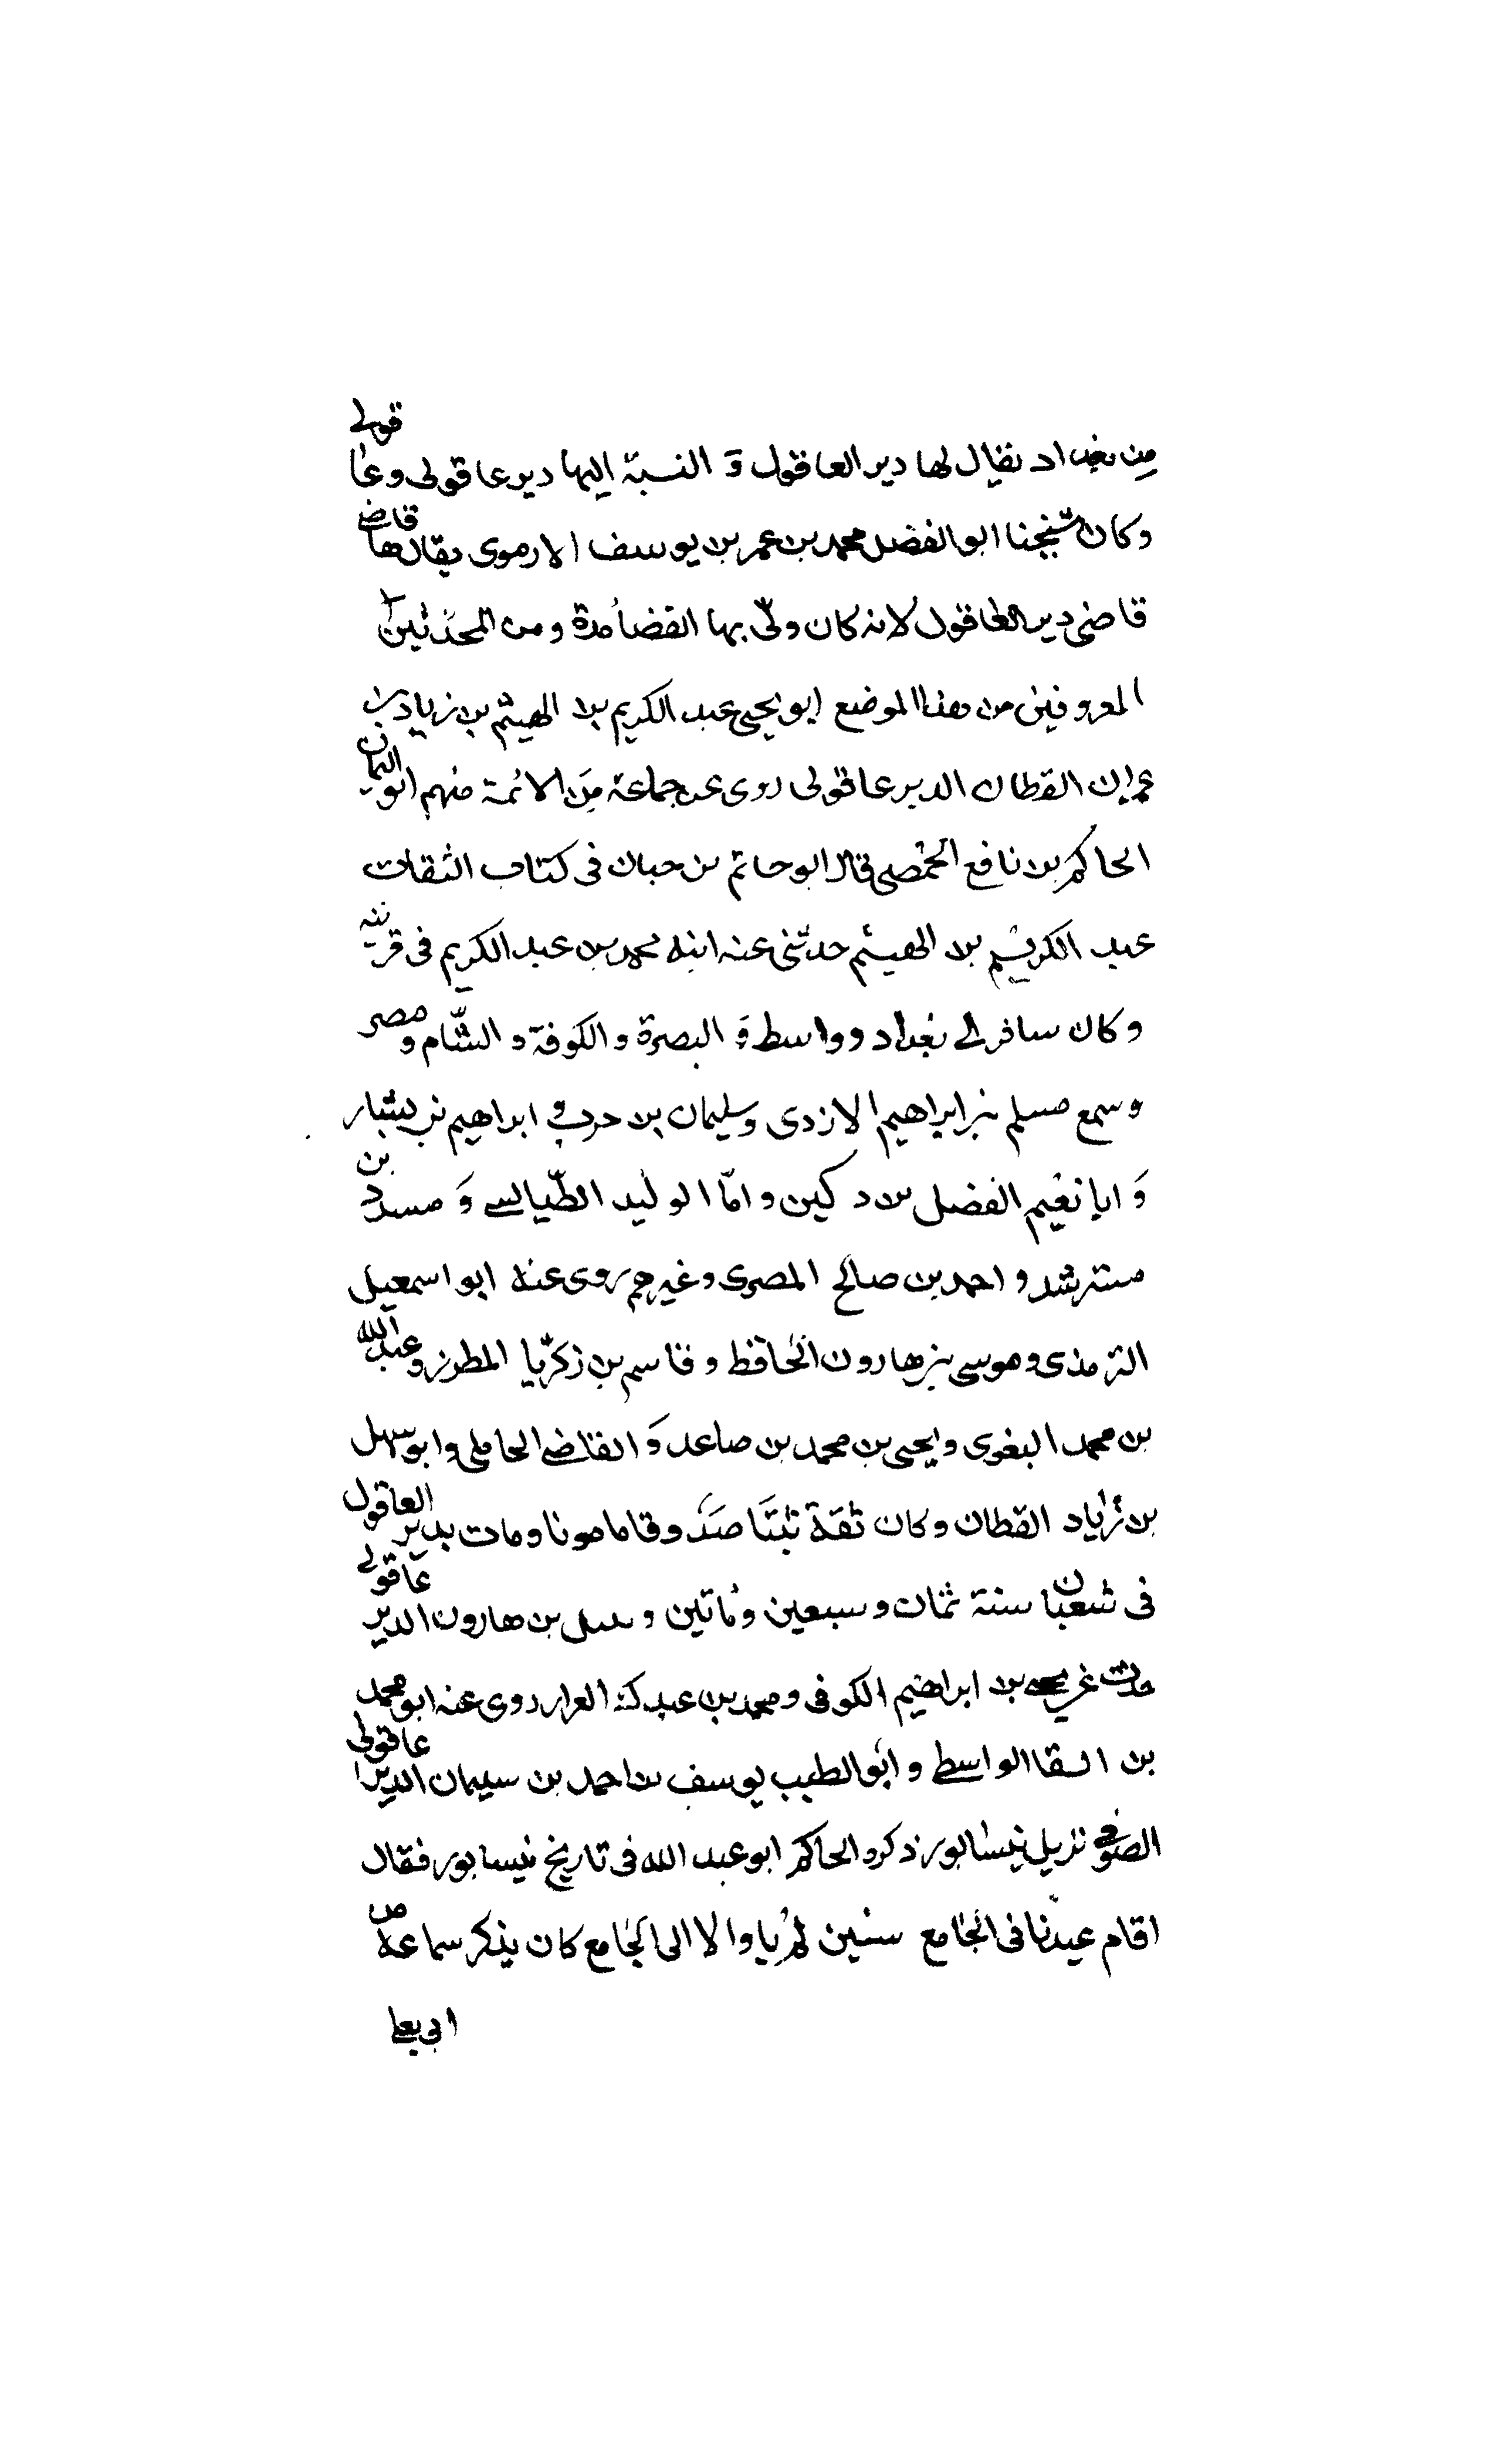 من بغداد يقال لها دير العاقول و النسبة اليها دير عاقولى وعاقولى
وكان شيخنا ابو الفضل محمد بن عمر بن يوسف الارموى يقال لها قاضى
قاضى دير العاقول لانه كان ولّى بها القضأ مدة ومن المحدثين
المعروفين من هذا الموضع ابو يحيى عبد الكريم بن الهيثم بن زياد بن
عمران القطان الدير عاقولى روى عن جماعة من الائمة منهم ابو اليمان
الحاكم بن نافع الحمصى قال ابو حاتم بن حبان فى كتاب الثقات
عبد الكريم بن الهيثم حدثنى عنه ابنه محمد بن عبد الكريم فى قريته
وكان سافر الى بغداد وواسط و البصرة و الكوفة و الشّام ومصر
وسمع مسلم بن ابراهيم الازدى وسليمان بن حرب و ابراهيم بن بشار
و ابا نعيم الفضل بن دكين و امّا الوليد الطّيالسى و مسدد بن
مسترشد و احمد بن صالح المصرى وغيرهم روى عنه ابو اسمعيل
الترمذى وموسى بن هارون الحافظ و قاسم بن زكريّا المطرز وعبد الله
بن محمد البغوى ويحيى بن محمد بن صاعد و القاضى الحاملى وابو سهل
بن زياد القطان وكان ثقة ثبتا صدوقا مامونا ومات بدير العاقول
فى شعبان سنة ثمان وسبعين وماتين و بن هارون الدير عاقولى
حدث عن بن ابراهيم الكوفى ومحمد بن عبدك روى عنه ابو محمد
بن السقا الواسطى و ابو الطيب يوسف بن احمد بن سليمان الدير عاقولى
الصوفى نزيل نيسابور ذكره الحاكم ابو عبد الله فى تاريخ نيسابور فقال
اقام عندنا فى الجامع سنين لم ياوا الا الى الجامع كان يذكر سماعه من
ابى يعلى